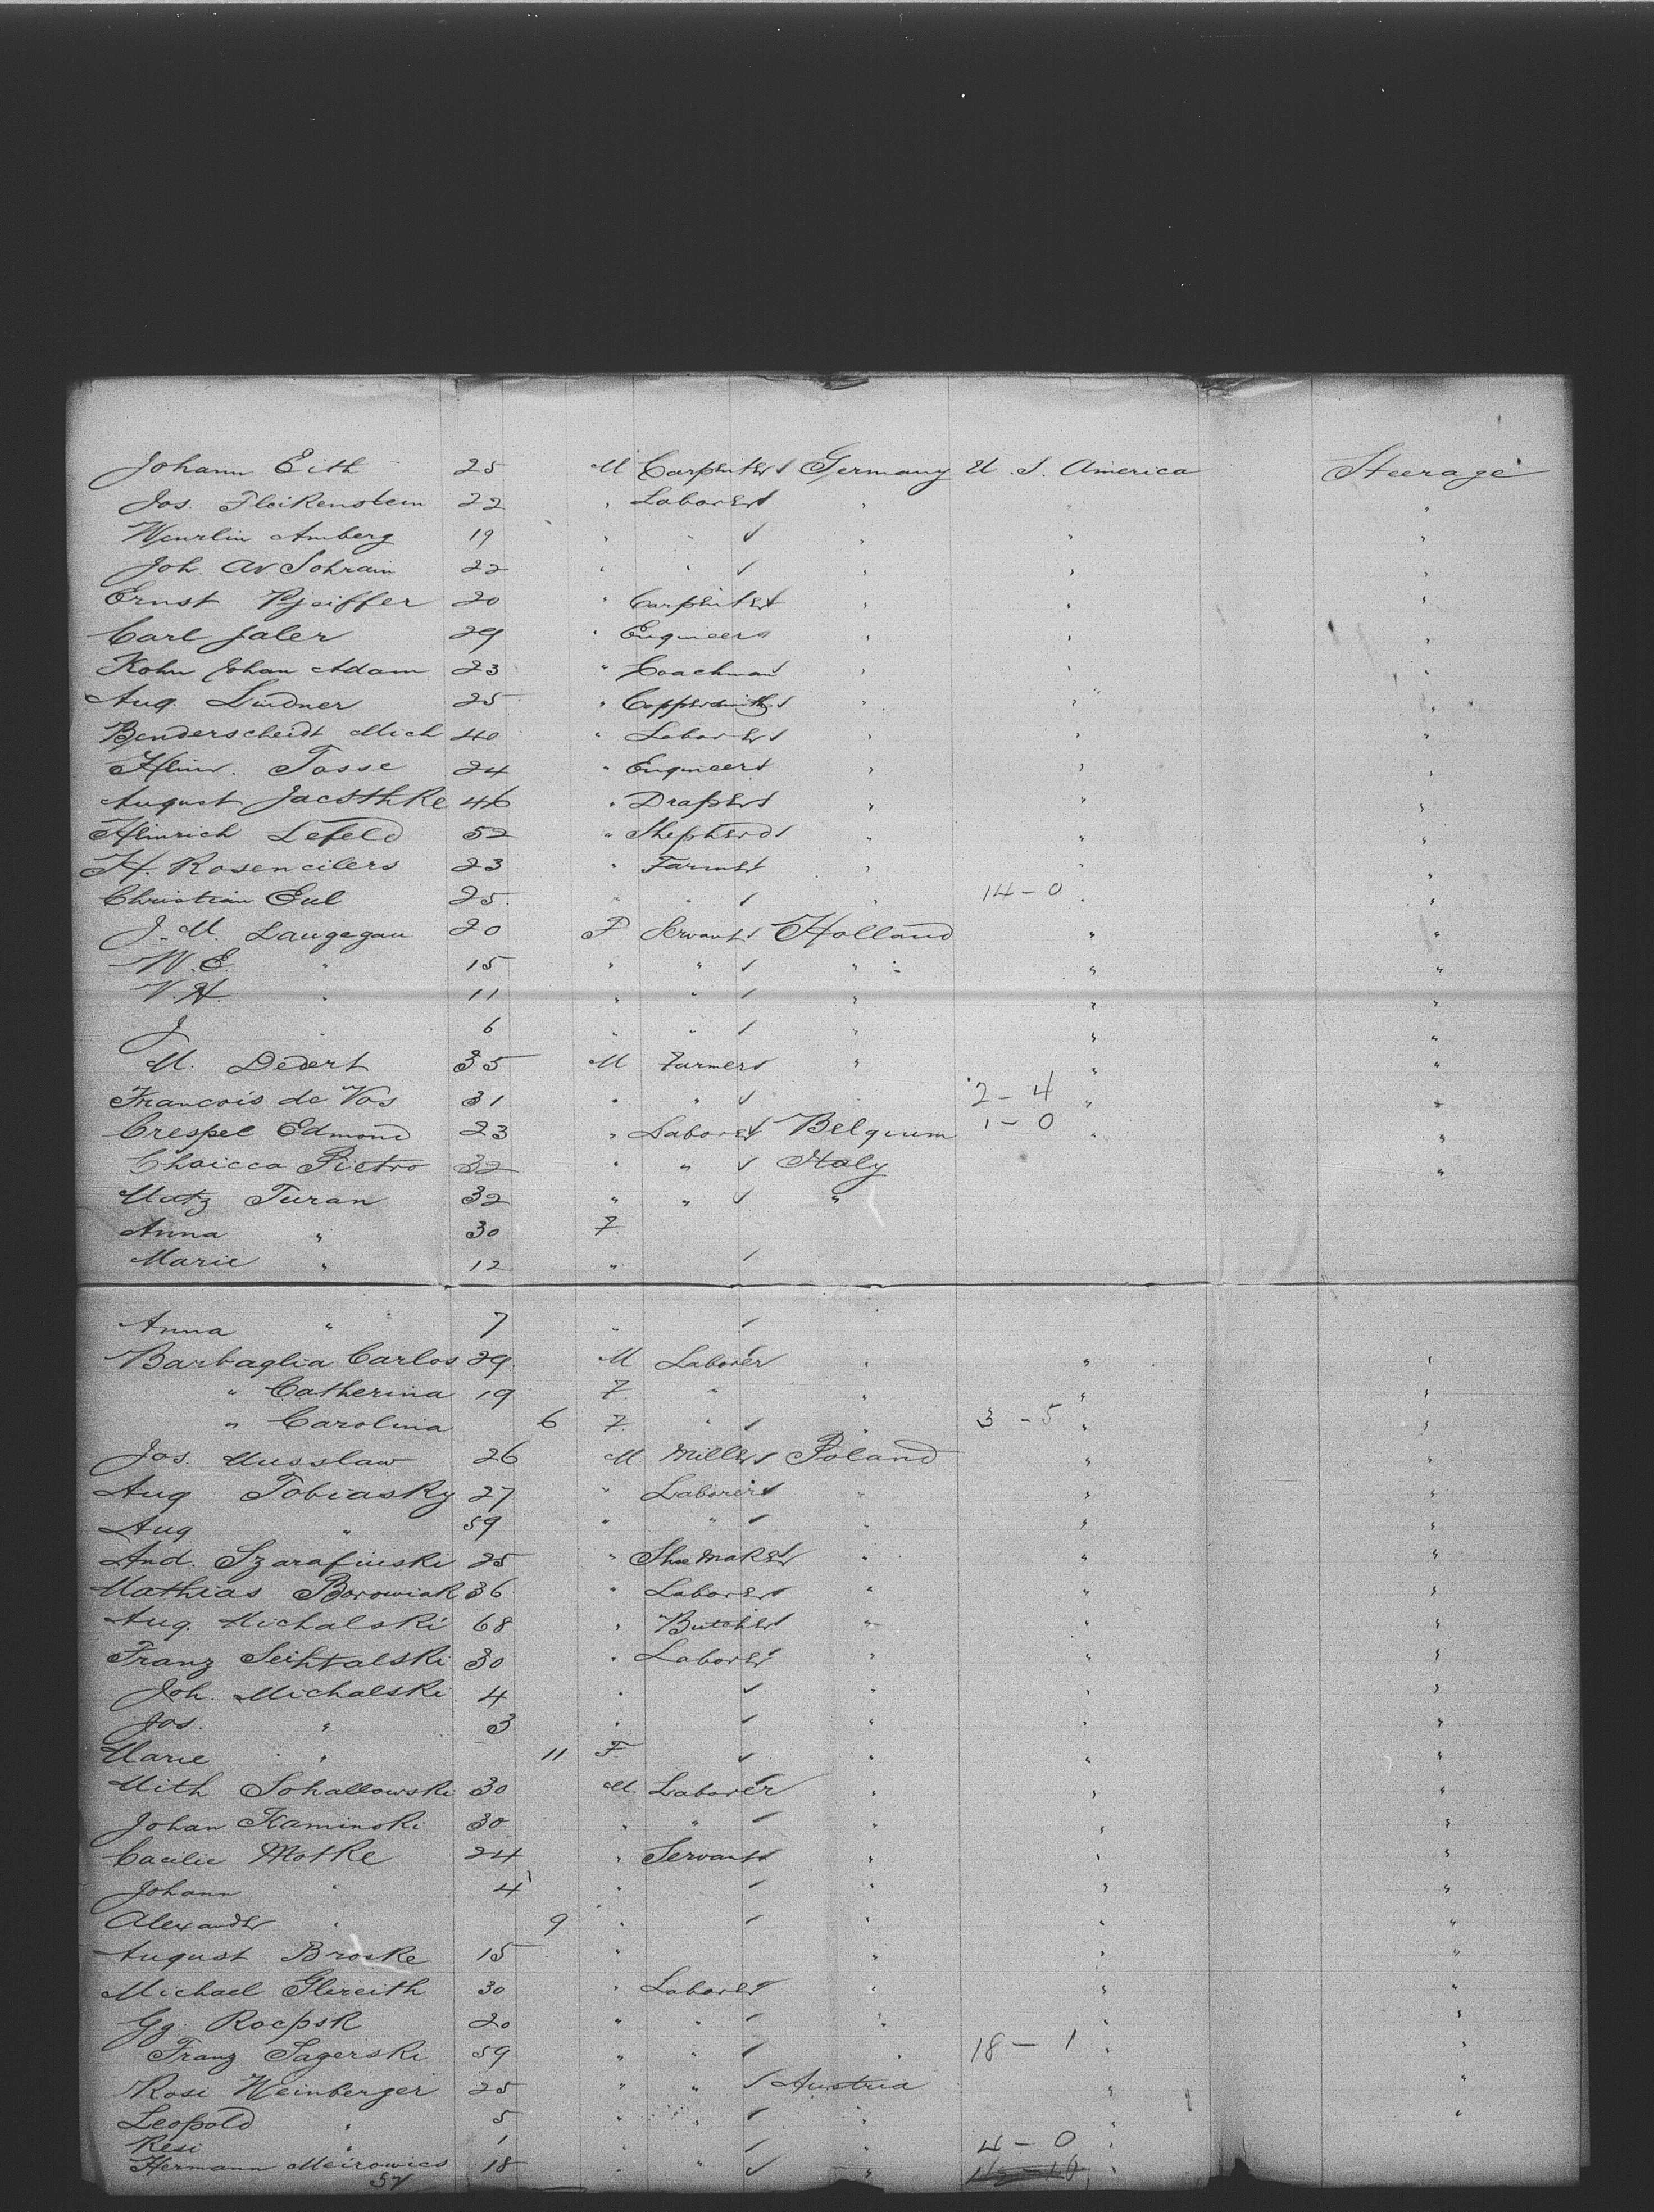 Johann Eith 25 M Carpenter Germany U. S. America Steerage
Jos. Fleikenstein 22 " Laborer " " "
Wenrlin Amberg 19 " " " " "
Joh. Av. Sohram 22 " " " " "
Ernst Pfeiffer 20 " Carpenter " " "
Carl Jaler 29 " Engineer " " "
Kohn Johan Adam 23 " Coachman " " "
Aug. Lindner 25 " Coppersmith " " "
Benderscheidt Mich 40 " Laborer " " "
Heinr. Tosse 24 " Engineer " " "
August Jacsthke 46 " Draper " " "
Heinrich Lefeld 52 " Shepherd " " "
H. Rosencilers 23 " Farmer " " "
Christian Eul 25 " " " 14-0 " "
J. M. Laugegau 20 F Servant Holland " "
W. E. " 15 " " " " "
V. H. " 11 " " " " "
J " 6 " " " " "
M. Dedert 35 M Farmer " " "
Francois de Vos 31 " " 2-4 " "
Crespel Edmond 23 " Laborer Belgium 1-0 " "
Chaicca Pietro 32 " " Italy "
Matz Turan 32 " " "
Anna " 30 F
Marie " 12 "
Anna " 7 "
Barbaglia Carlos 29 M Laborer " " "
" Catherina 19 F " " " "
" Carolina 6 F " " 3-5 " "
Jos. Musslaw 26 M Miller Poland " "
Aug Tobiasky 27 " Laborer " " "
Aug " 59 " " " " "
And. Szarafinski 25 " Shoemaker " " "
Mathias Borowiak 36 " Laborer " " "
Aug. Michalski 68 " Butcher " " "
Franz Seihtalski 30 " Laborer " " "
Joh. Michalski 4 " " " "
Jos. " 3 " " " "
Marie " 11 F " " "
Mith Sohallowski 30 M. Laborer " " "
Johan Kaminski 30 " " " " "
Cacilie Motke 24 " Servant " " "
Johann " 4 " " " "
Alexander " 9 " " " "
August Broske 15 " " " "
Michael Glireith 30 " Laborer " " "
Gg. Rocpsk 20 " " " " "
Franz Sagerski 59 " " " 18-1 " "
Rosi Weinberger 25 " " Austria " "
Leopold " 5 " " " " "
Resi " 1 " " 4-0 "
Hermann Meirowics 18 " " " "
52